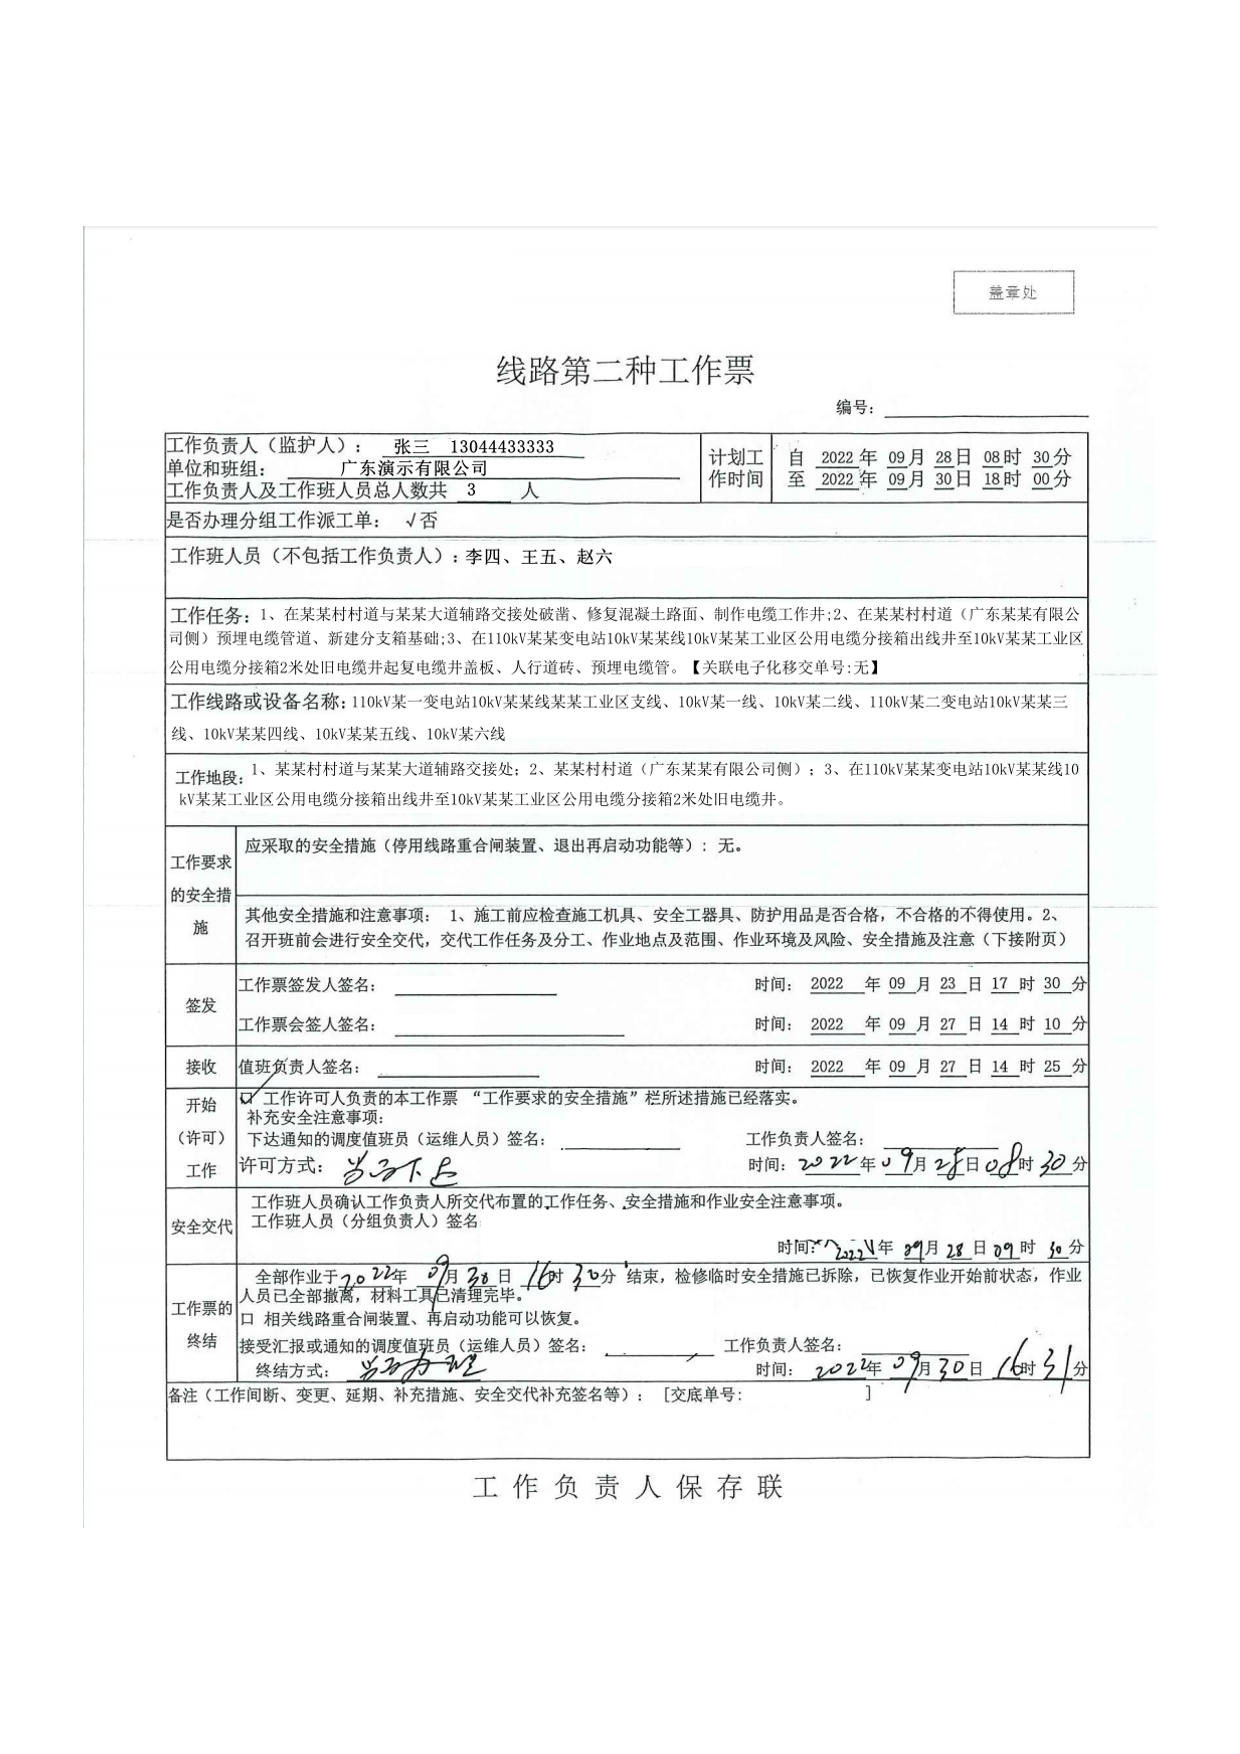 盖章处
线路第二种工作票
编号：
工作负责人（监护人）： 张三 13044433333
单位和班组： 广东演示有限公司
工作负责人及工作班人员总人数共 3 人
计划工作时间
自 2022 年 09 月 28 日 08 时 30 分
至 2022 年 09 月 30 日 18 时 00 分
是否办理分组工作派工单： √否
工作班人员（不包括工作负责人）：李四、王五、赵六
工作任务：1、在某某村村道与某某大道辅路交接处破凿、修复混凝土路面、制作电缆工作井;2、在某某村村道（广东某某有限公
司侧）预埋电缆管道、新建分支箱基础;3、在110kV某某变电站10kV某某线10kV某某工业区公用电缆分接箱出线井至10kV某某工业区
公用电缆分接箱2米处旧电缆井起复电缆井盖板、人行道砖、预埋电缆管。【关联电子化移交单号:无】
工作线路或设备名称：110kV某一变电站10kV某某线某某工业区支线、10kV某一线、10kV某二线、110kV某二变电站10kV某某三
线、10kV某某四线、10kV某某五线、10kV某六线
工作地段：1、某某村村道与某某大道辅路交接处；2、某某村村道（广东某某有限公司侧）；3、在110kV某某变电站10kV某某线10
kV某某工业区公用电缆分接箱出线井至10kV某某工业区公用电缆分接箱2米处旧电缆井。
工作要求的安全措施
应采取的安全措施（停用线路重合闸装置、退出再启动功能等）：无。
其他安全措施和注意事项： 1、施工前应检查施工机具、安全工器具、防护用品是否合格，不合格的不得使用。2、
召开班前会进行安全交代，交代工作任务及分工、作业地点及范围、作业环境及风险、安全措施及注意（下接附页）
签发
工作票签发人签名： 时间： 2022 年 09 月 23 日 17 时 30 分
工作票会签人签名： 时间： 2022 年 09 月 27 日 14 时 10 分
接收
值班负责人签名： 时间： 2022 年 09 月 27 日 14 时 25 分
开始（许可）工作
☑ 工作许可人负责的本工作票 “工作要求的安全措施”栏所述措施已经落实。
补充安全注意事项：
下达通知的调度值班员（运维人员）签名： 工作负责人签名：
许可方式： 当面下达 时间：2022年09月28日08时30分
安全交代
工作班人员确认工作负责人所交代布置的工作任务、安全措施和作业安全注意事项。
工作班人员（分组负责人）签名
时间： 2022年 09月 28日 09时 30分
工作票的终结
全部作业于2022年 09月 30日 16时 30分 结束，检修临时安全措施已拆除，已恢复作业开始前状态，作业
人员已全部撤离，材料工具已清理完毕。
口 相关线路重合闸装置、再启动功能可以恢复。
接受汇报或通知的调度值班员（运维人员）签名： 工作负责人签名：
终结方式： 当面办理 时间： 2022年 09月30日 16时31分
备注（工作间断、变更、延期、补充措施、安全交代补充签名等）： [交底单号： ]
工作负责人保存联